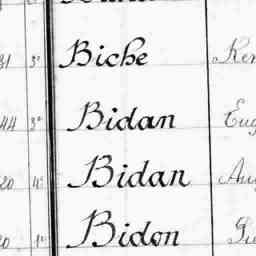 31 3e Biche
44 3e Bidan Eug
20 4e Bidan Aug
1e Bidon